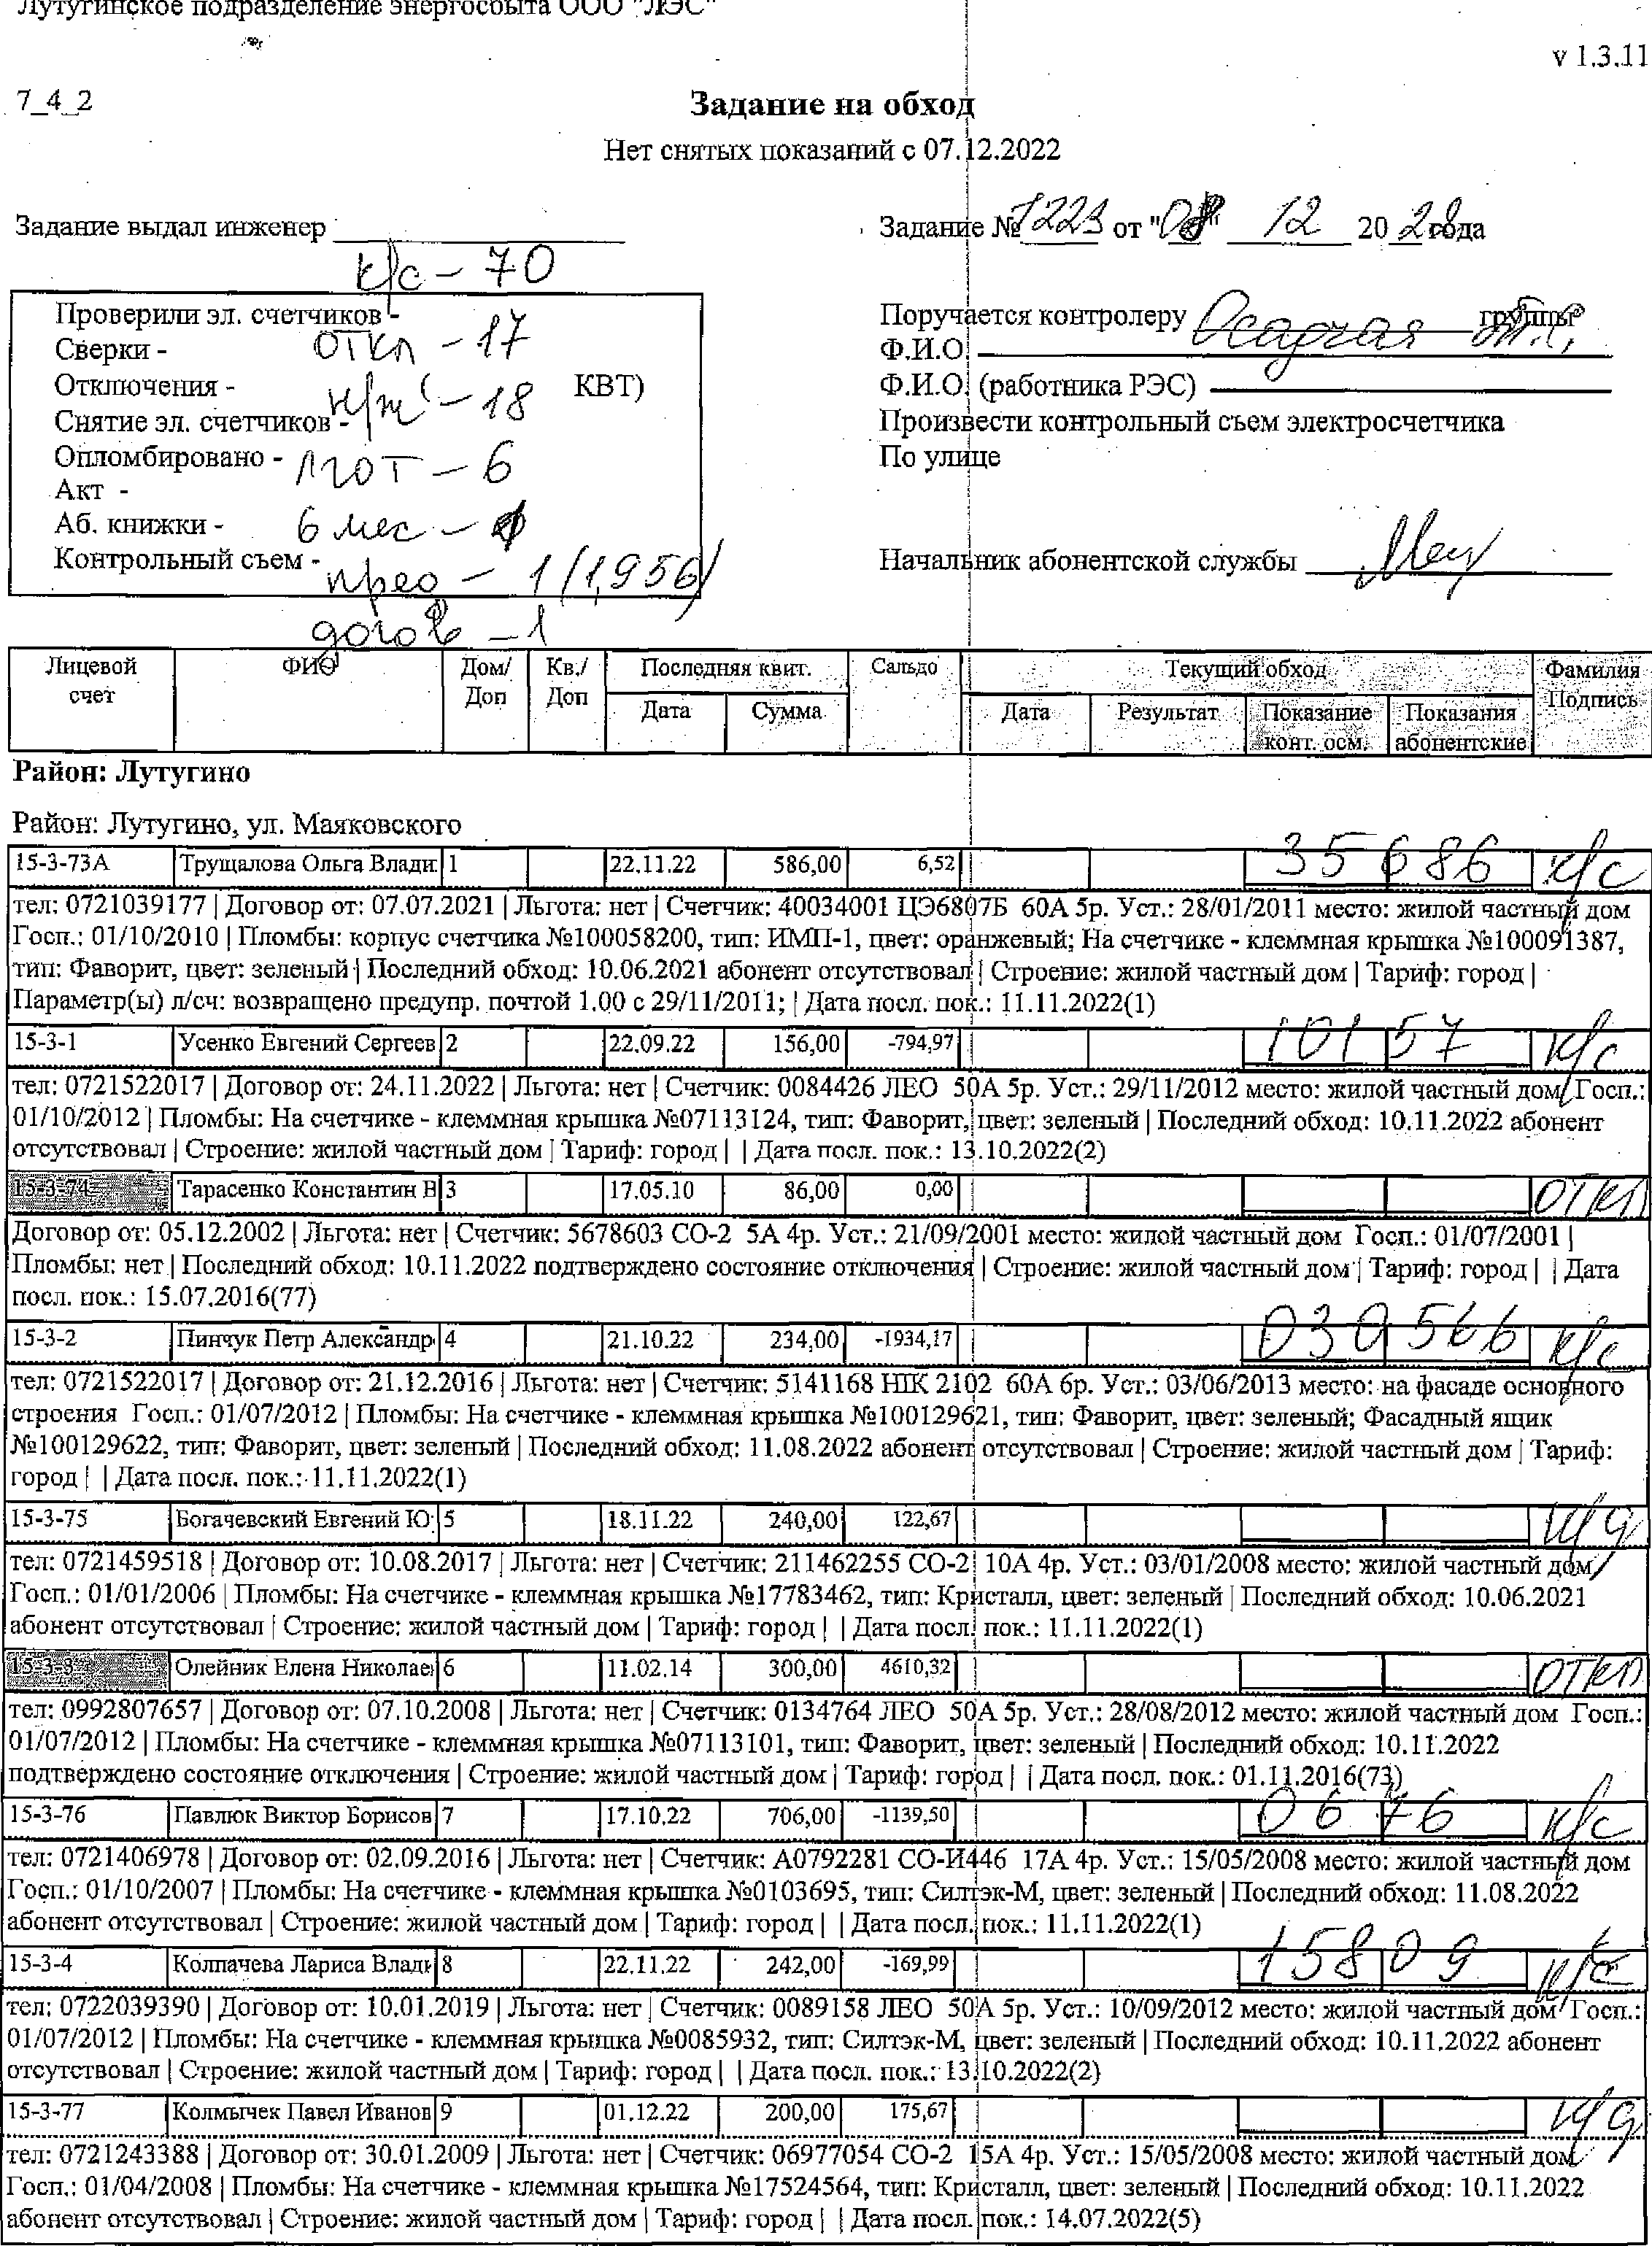 Лутугинское подразделение энергосбыта ООО "ЛЭС"
v 1.3.11
7_4_2
Задание на обход
Нет снятых показаний с 07.12.2022
Задание выдал инженер
Задание № 1223 от "08" 12 2028 года
к/с - 70
Проверили эл. счетчиков -
Сверки - откл - 17
Отключения - КВТ)
Снятие эл. счетчиков - н/ж - 18
Опломбировано - льгот - 6
Акт -
Аб. книжки - 6 мес -
Контрольный съем -
1 (1,956)
догов - 1
Поручается контролеру Осадчая группы
Ф.И.О.
Ф.И.О. (работника РЭС)
Произвести контрольный съем электросчетчика
По улице
Начальник абонентской службы
Лицевой счет ФИО Дом/Доп Кв./Доп Последняя квит. Сальдо Текущий обход Фамилия Подпись
Дата Сумма Дата Результат Показание конт. осм. Показания абонентские
Район: Лутугино
Район: Лутугино, ул. Маяковского
15-3-73А Трущалова Ольга Влади 1 22.11.22 586,00 6,52 35686 к/с
тел: 0721039177 | Договор от: 07.07.2021 | Льгота: нет | Счетчик: 40034001 ЦЭ6807Б 60А 5р. Уст.: 28/01/2011 место: жилой частный дом
Госп.: 01/10/2010 | Пломбы: корпус счетчика №100058200, тип: ИМП-1, цвет: оранжевый; На счетчике - клеммная крышка №100091387,
тип: Фаворит, цвет: зеленый | Последний обход: 10.06.2021 абонент отсутствовал | Строение: жилой частный дом | Тариф: город |
Параметр(ы) л/сч: возвращено предупр. почтой 1.00 с 29/11/2011; | Дата посл. пок.: 11.11.2022(1)
15-3-1 Усенко Евгений Сергеев 2 22.09.22 156,00 -794,97 10157 к/с
тел: 0721522017 | Договор от: 24.11.2022 | Льгота: нет | Счетчик: 0084426 ЛЕО 50А 5р. Уст.: 29/11/2012 место: жилой частный дом Госп.:
01/10/2012 | Пломбы: На счетчике - клеммная крышка №07113124, тип: Фаворит, цвет: зеленый | Последний обход: 10.11.2022 абонент
отсутствовал | Строение: жилой частный дом | Тариф: город | | Дата посл. пок.: 13.10.2022(2)
15-3-74 Тарасенко Константин В 3 17.05.10 86,00 0,00 откл
Договор от: 05.12.2002 | Льгота: нет | Счетчик: 5678603 СО-2 5А 4р. Уст.: 21/09/2001 место: жилой частный дом Госп.: 01/07/2001 |
Пломбы: нет | Последний обход: 10.11.2022 подтверждено состояние отключения | Строение: жилой частный дом | Тариф: город | | Дата
посл. пок.: 15.07.2016(77)
15-3-2 Пинчук Петр Александр 4 21.10.22 234,00 -1934,17 030566 к/с
тел: 0721522017 | Договор от: 21.12.2016 | Льгота: нет | Счетчик: 5141168 НІК 2102 60А 6р. Уст.: 03/06/2013 место: на фасаде основного
строения Госп.: 01/07/2012 | Пломбы: На счетчике - клеммная крышка №100129621, тип: Фаворит, цвет: зеленый; Фасадный ящик
№100129622, тип: Фаворит, цвет: зеленый | Последний обход: 11.08.2022 абонент отсутствовал | Строение: жилой частный дом | Тариф:
город | | Дата посл. пок.: 11.11.2022(1)
15-3-75 Богачевский Евгений Ю 5 18.11.22 240,00 122,67 н/д
тел: 0721459518 | Договор от: 10.08.2017 | Льгота: нет | Счетчик: 211462255 СО-2 10А 4р. Уст.: 03/01/2008 место: жилой частный дом
Госп.: 01/01/2006 | Пломбы: На счетчике - клеммная крышка №17783462, тип: Кристалл, цвет: зеленый | Последний обход: 10.06.2021
абонент отсутствовал | Строение: жилой частный дом | Тариф: город | | Дата посл. пок.: 11.11.2022(1)
15-3-3 Олейник Елена Николае 6 11.02.14 300,00 4610,32 откл
тел: 0992807657 | Договор от: 07.10.2008 | Льгота: нет | Счетчик: 0134764 ЛЕО 50А 5р. Уст.: 28/08/2012 место: жилой частный дом Госп.:
01/07/2012 | Пломбы: На счетчике - клеммная крышка №07113101, тип: Фаворит, цвет: зеленый | Последний обход: 10.11.2022
подтверждено состояние отключения | Строение: жилой частный дом | Тариф: город | | Дата посл. пок.: 01.11.2016(73)
15-3-76 Павлюк Виктор Борисов 7 17.10.22 706,00 -1139,50 0676 к/с
тел: 0721406978 | Договор от: 02.09.2016 | Льгота: нет | Счетчик: А0792281 СО-И446 17А 4р. Уст.: 15/05/2008 место: жилой частный дом
Госп.: 01/10/2007 | Пломбы: На счетчике - клеммная крышка №0103695, тип: Силтэк-М, цвет: зеленый | Последний обход: 11.08.2022
абонент отсутствовал | Строение: жилой частный дом | Тариф: город | | Дата посл. пок.: 11.11.2022(1)
15-3-4 Колпачева Лариса Влади 8 22.11.22 242,00 -169,99 15809 к/с
тел: 0722039390 | Договор от: 10.01.2019 | Льгота: нет | Счетчик: 0089158 ЛЕО 50А 5р. Уст.: 10/09/2012 место: жилой частный дом Госп.:
01/07/2012 | Пломбы: На счетчике - клеммная крышка №0085932, тип: Силтэк-М, цвет: зеленый | Последний обход: 10.11.2022 абонент
отсутствовал | Строение: жилой частный дом | Тариф: город | | Дата посл. пок.: 13.10.2022(2)
15-3-77 Колмычек Павел Иванов 9 01.12.22 200,00 175,67 н/д
тел: 0721243388 | Договор от: 30.01.2009 | Льгота: нет | Счетчик: 06977054 СО-2 15А 4р. Уст.: 15/05/2008 место: жилой частный дом
Госп.: 01/04/2008 | Пломбы: На счетчике - клеммная крышка №17524564, тип: Кристалл, цвет: зеленый | Последний обход: 10.11.2022
абонент отсутствовал | Строение: жилой частный дом | Тариф: город | | Дата посл. пок.: 14.07.2022(5)